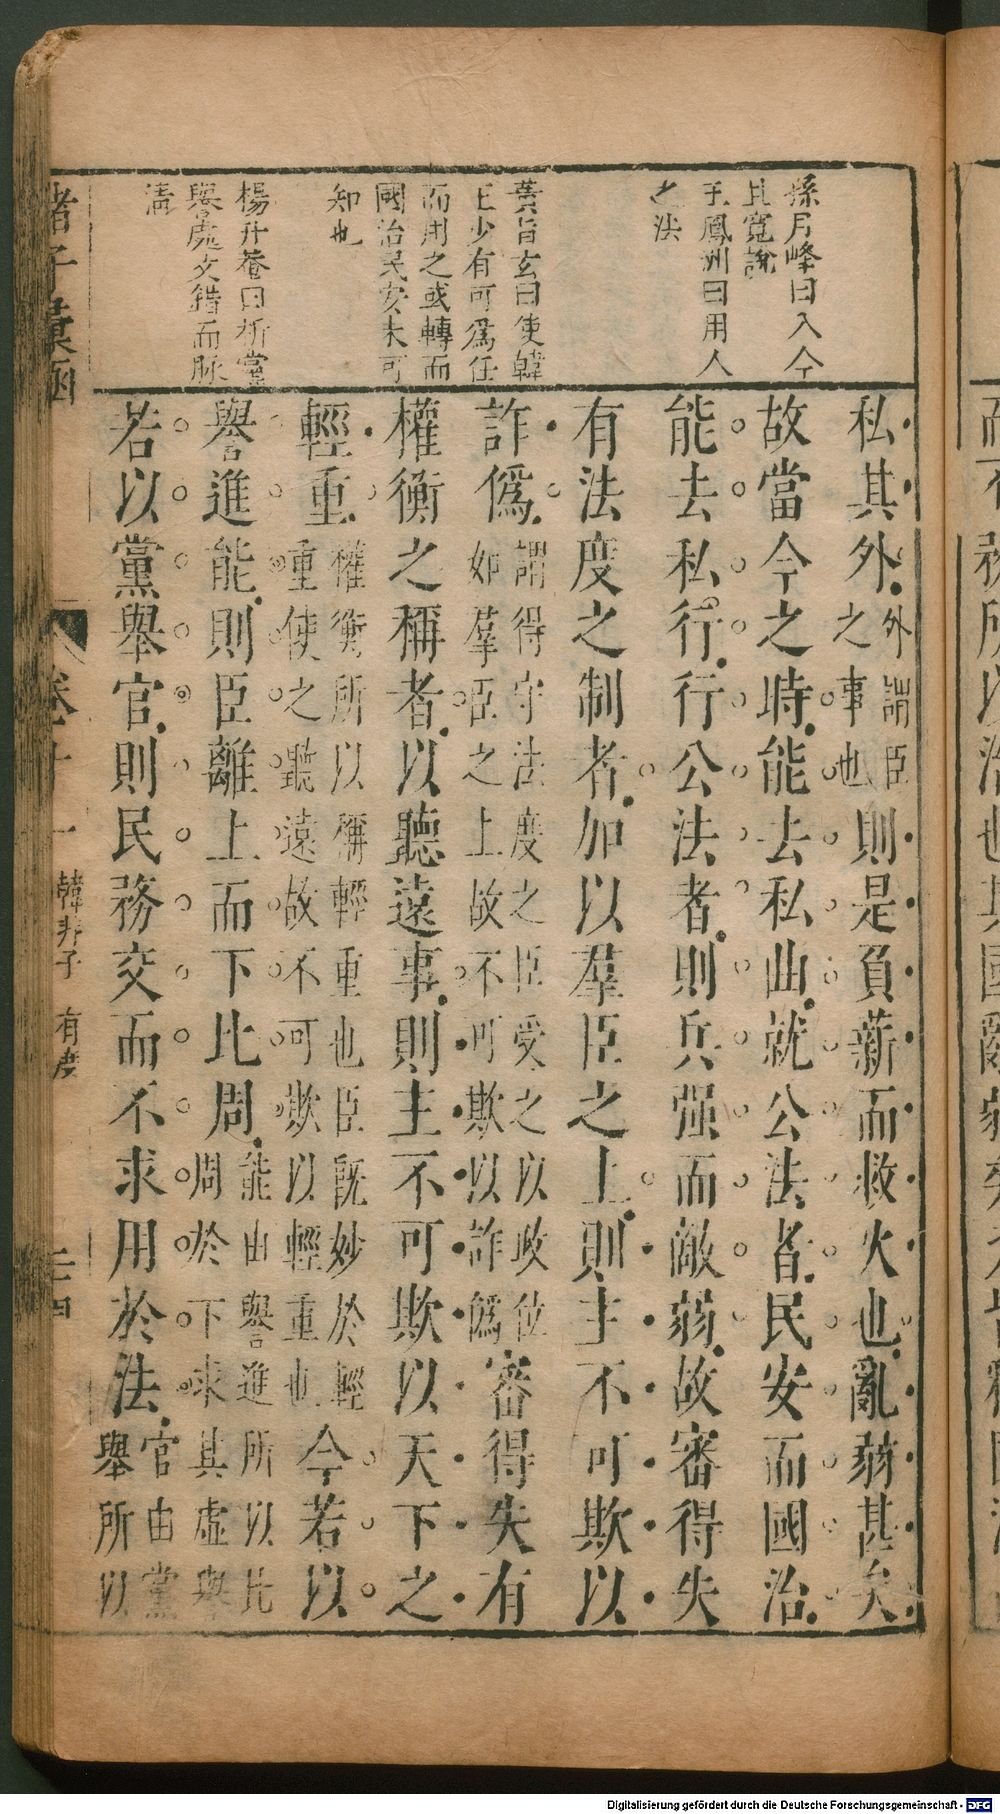 孫月峰曰入今
且寬說
王鳳洲曰用人
之法
黃旨玄曰使韓
王少有可爲任
而用之或轉而
國治民安未可
知也
楊升菴曰析黨
譽處文錯而脉
清
私其外外謂臣之事也則是負薪而救火也亂弱甚矣
故當今之時能去私曲就公法者民安而國治
能去私行行公法者則兵强而敵弱故審得失
有法度之制者加以羣臣之上則主不可欺以
詐僞謂得守法度之臣受之以政位如羣臣之上故不可欺以詐僞審得失有
權衡之稱者以聽遠事則主不可欺以天下之
輕重權衡所以稱輕重也臣旣妙於輕重使之聽遠故不可欺以輕重也今若以
譽進能則臣離上而下比周能由譽進所以比周於下求其虛譽
若以黨舉官則民務交而不求用於法官由黨舉所以
諸子彙函
卷十一
韓非子 有度
二四
Digitalisierung gefördert durch die Deutsche Forschungsgemeinschaft - DFG